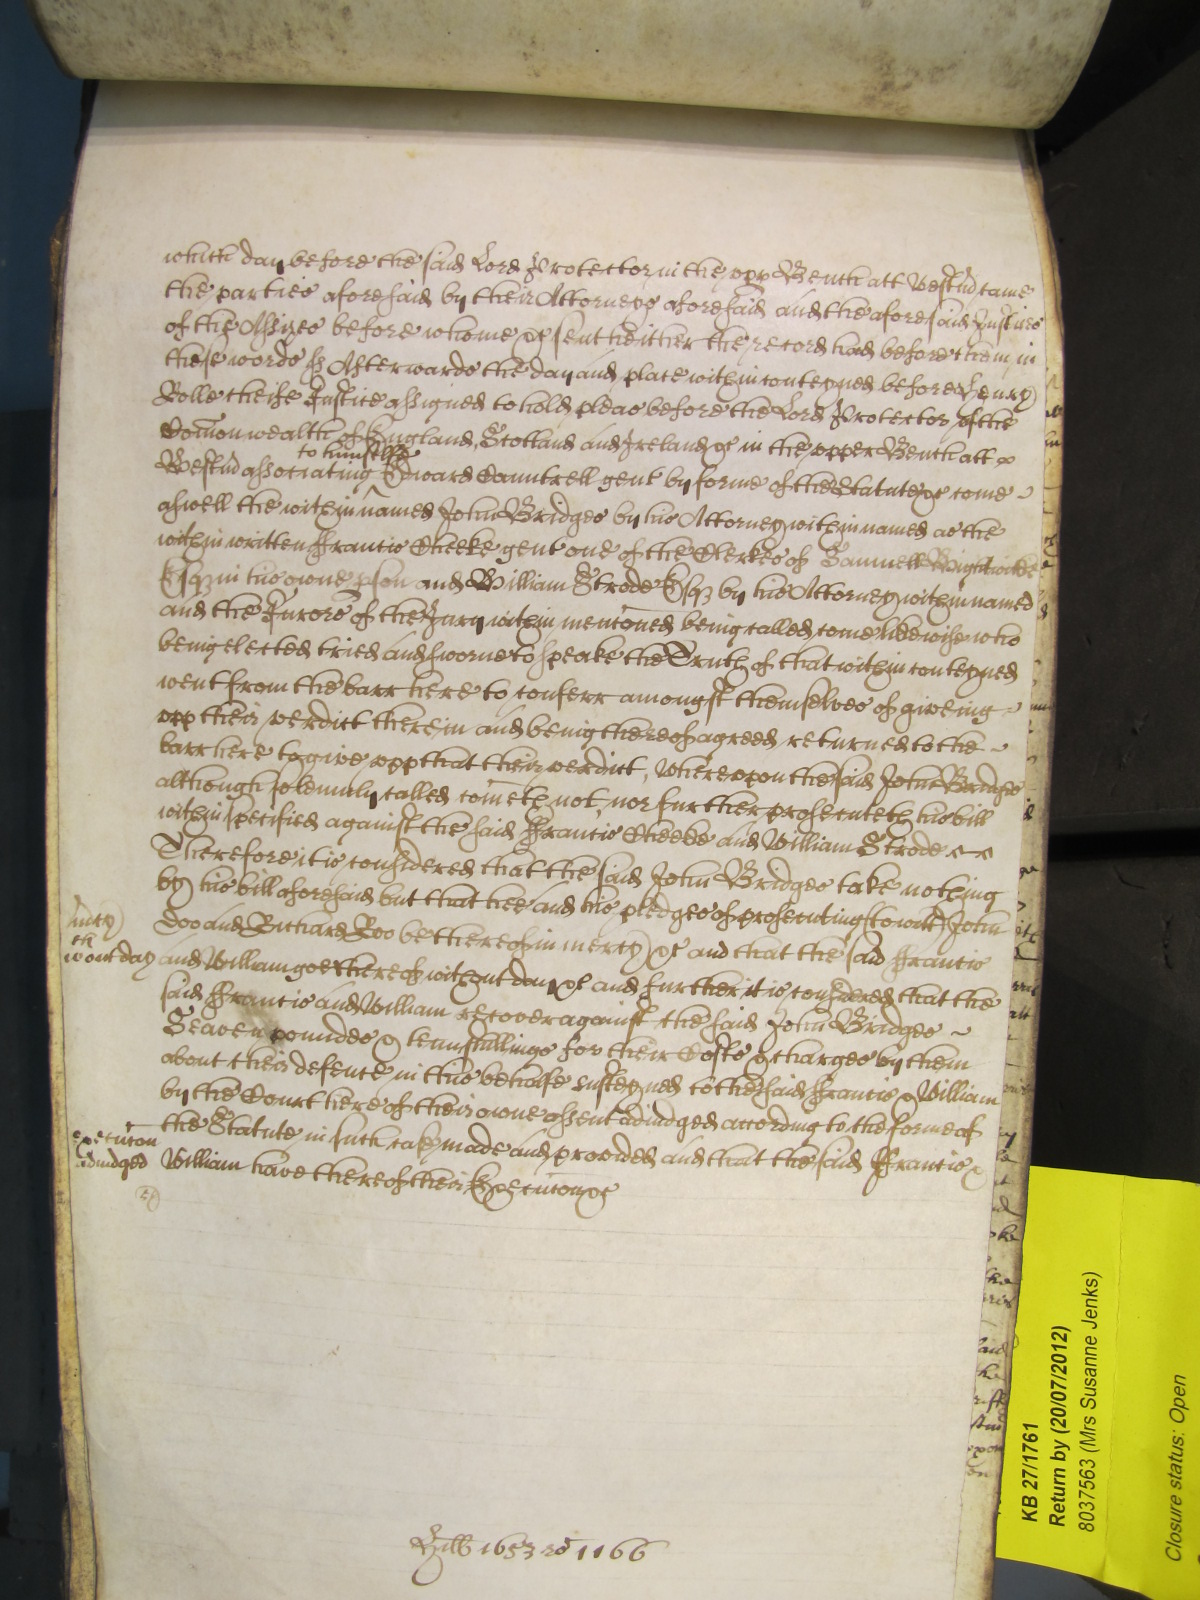 which day before the said Lord Protector in the upp Bench att Westm̃ came
the parties aforesaid by their Attorneys aforesaid and the aforesaid Justices
of the Assizes before whome &c sent heither the record had before them in
these words ss Afterwards the day and place within conteyned before Henry
Rolle cheife Justice assigned to hold pleas before the Lord Protector of the
Com̃onwealth of England, Scotland and Ireland &c in the upper Bench att
to himselfe
Westm̃ associating Edward Cauntrell gent by forme of the Statute &c come
aswell the within named John Bridges by his Attorney within named as the
within written Francis Cheeke gent one of the Clerkes of Samuell Wightwicke
Esqz in his owne pson and William Strode Esqz by his Attorney within named
and the Jurors of the Jury within mentoned being called come likewise who
being elected tried and sworne to speake the Truth of that within conteyned
went from the barr here to conferr amongst themselves of giveing
upp their verdict therein and being thereof agreed returned to the
barr here to give upp that their verdict, whereupon the said John Bridges
although solemnly called cometh not, nor further prosecuteth his bill
within specified against the said Francis Cheeke and William Strode
Therefore it is considered that the said John Bridges take nothing
by his bill aforesaid but that hee and his pledges of prosecuting (to witt) John
mercy
Doo and Richard Roo be thereof in mercy &c and that the said Francis
wthout day
and William goe thereof without day &c and further it is considered that the
said Francis and William recover against the said John Bridges
Seaven poundes & tenn shillings for their Costs & charges by them
about their defence in this behalfe susteyned to the said Francis & William
by the Court here of their owne assent adiudged according to the forme of
the Statute in such case made and provided and that the said Francis &
execution
adiudged
William have thereof their Execution &c
Hill 1653 ro 1166
KB 27/1761
Return by (20/07/2012)
8037563 (Mrs Susanne Jenks)
Closure status: Open